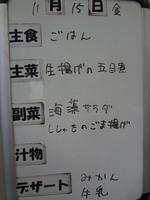 11月15日 金
主食 ごはん
主菜 生揚げの五目煮
副菜 海藻サラダ
ししゃものごま揚げ
汁物
デザート みかん
牛乳